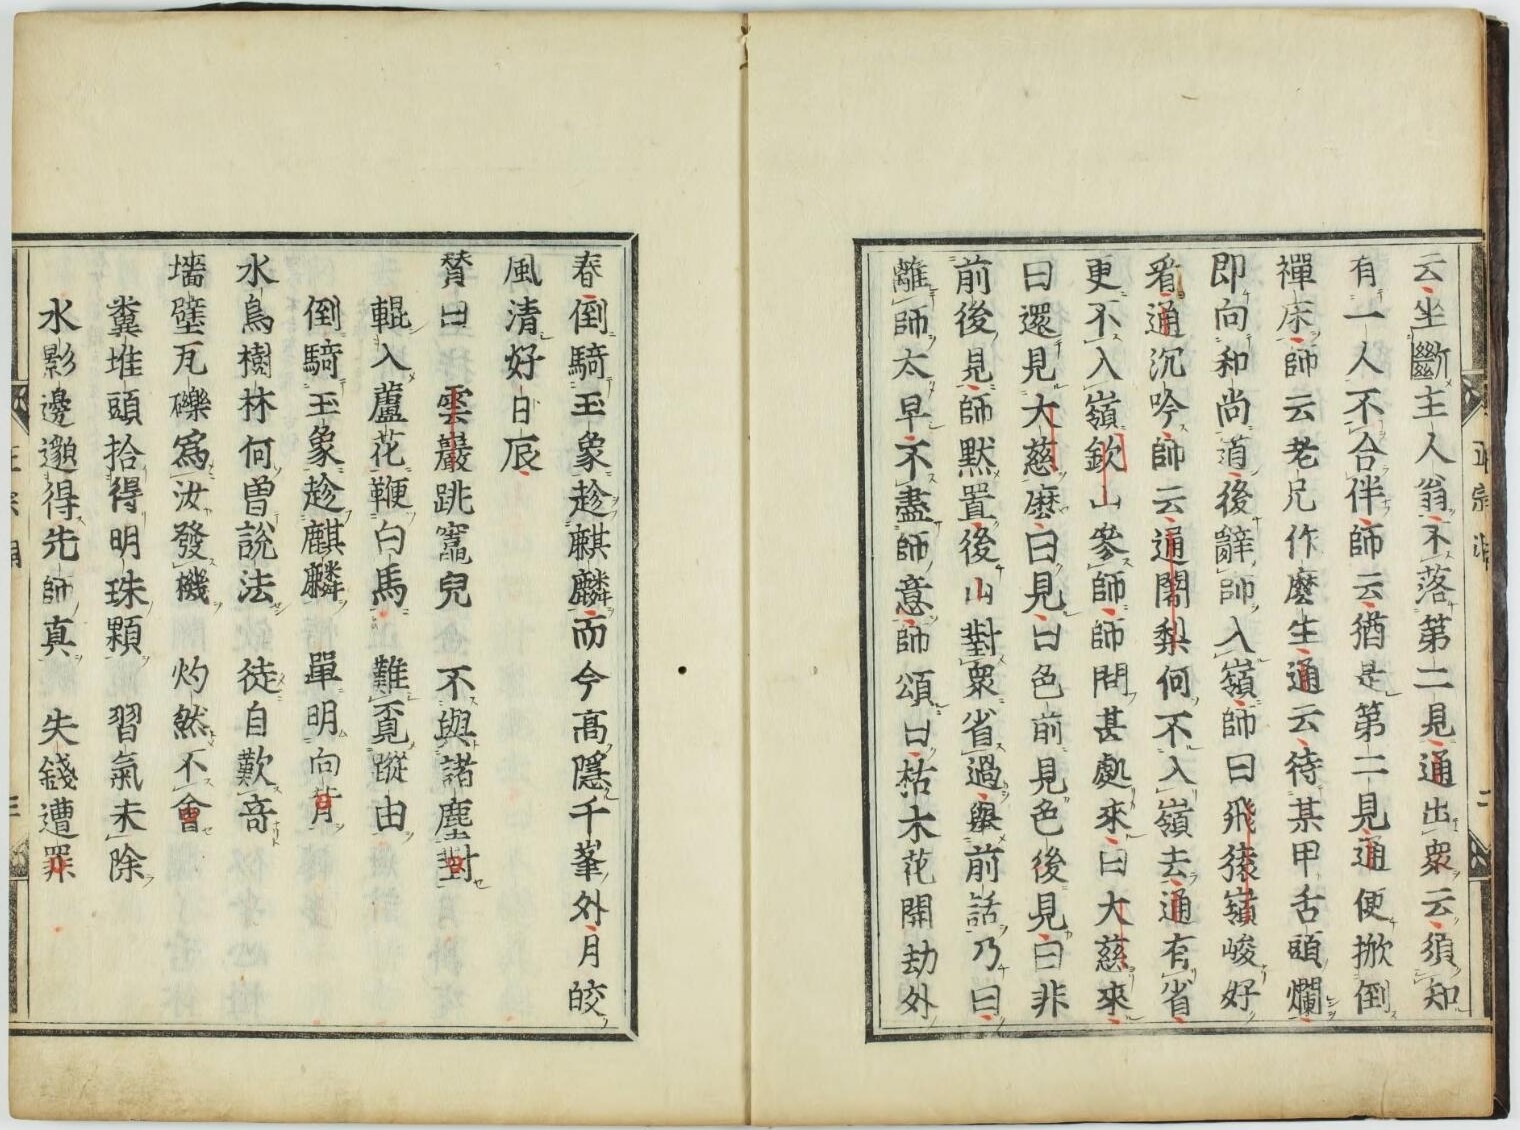 云坐斷主人翁不落第二見通出衆云須知
有一人不合伴師云猶是第二見通便掀倒
禪床師云老兄作麼生通云待某甲舌頭爛
即向和尚道後辭師入嶺師曰飛猿嶺峻好
看通沉吟師云通闍梨何不入嶺去通有省
更不入嶺欽山參師師問甚處來曰大慈來
曰還見大慈麼曰見曰色前見色後見曰非
前後見師默置後山對衆省過擧前話乃曰
離師太早不盡師意師頌曰枯木花開劫外
春倒騎玉象趁麒麟而今高隱千峯外月皎
風清好日辰
賛曰 雲巖跳竈兒 不與諸塵對
輥入蘆花鞭白馬 難覓蹤由
倒騎玉象趁麒麟 單明向背
水鳥樹林何曾説法 徒自歎竒
墻壁瓦礫爲汝發機 灼然不會
糞堆頭拾得明珠顆 習氣未除
水影邊邈得先師真 失錢遭罪